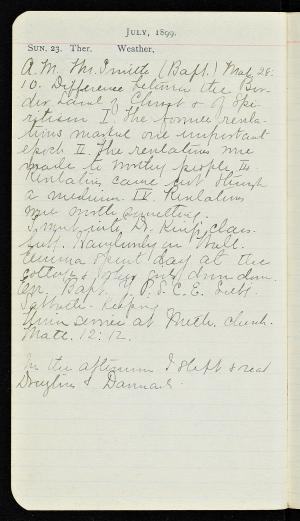 JULY, 1899.
SUN. 23. Ther. Weather.
A.M. Mr. Smith (Bapt.) Mat. 28:
10. Difference between the Bor-
der Land of Christ & of Spi-
ritism I. The former revla-
tions marked one important
epoch II. The revelations were
made to worthy people III
Revlations came not through
a medium IV. Revlations
were worth something.
I went into Dr. King's class
but
spent day at the
cottage
Bapt. Y. P. S. C. E. Subj.
Sabbath-Keeping
Union service at Meth. church.
Matt. 12:12.
In the afternoon I slept & read
Douglass &